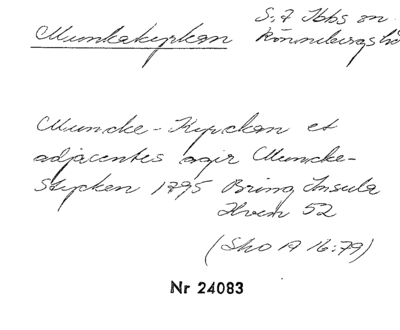 Munkakyrkan S:t Ibbs sn
Rönnebergs hd
Muncke-Kyrckan et
adjacentes agir Muncke-
Stycken 1795 Bring Insula
Hven 52
(Sko A 16:79)
Nr 24083